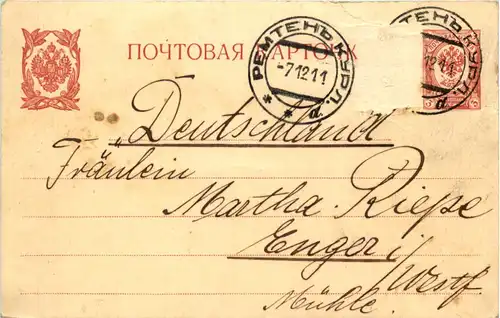 ПОЧТОВАЯ КАРТОЧКА
РЕМТЕНЪ КУРЛ.
-7 12 11
d.
"Deutschland
Fräulein
Martha Riepe
Enger i/Westf.
Mühle.